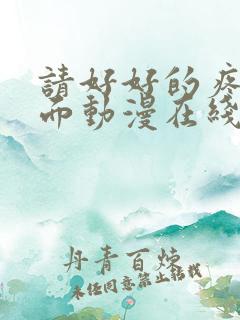 請好好的疼
而動漫在綫
丹青百煉
未经同意禁止转载